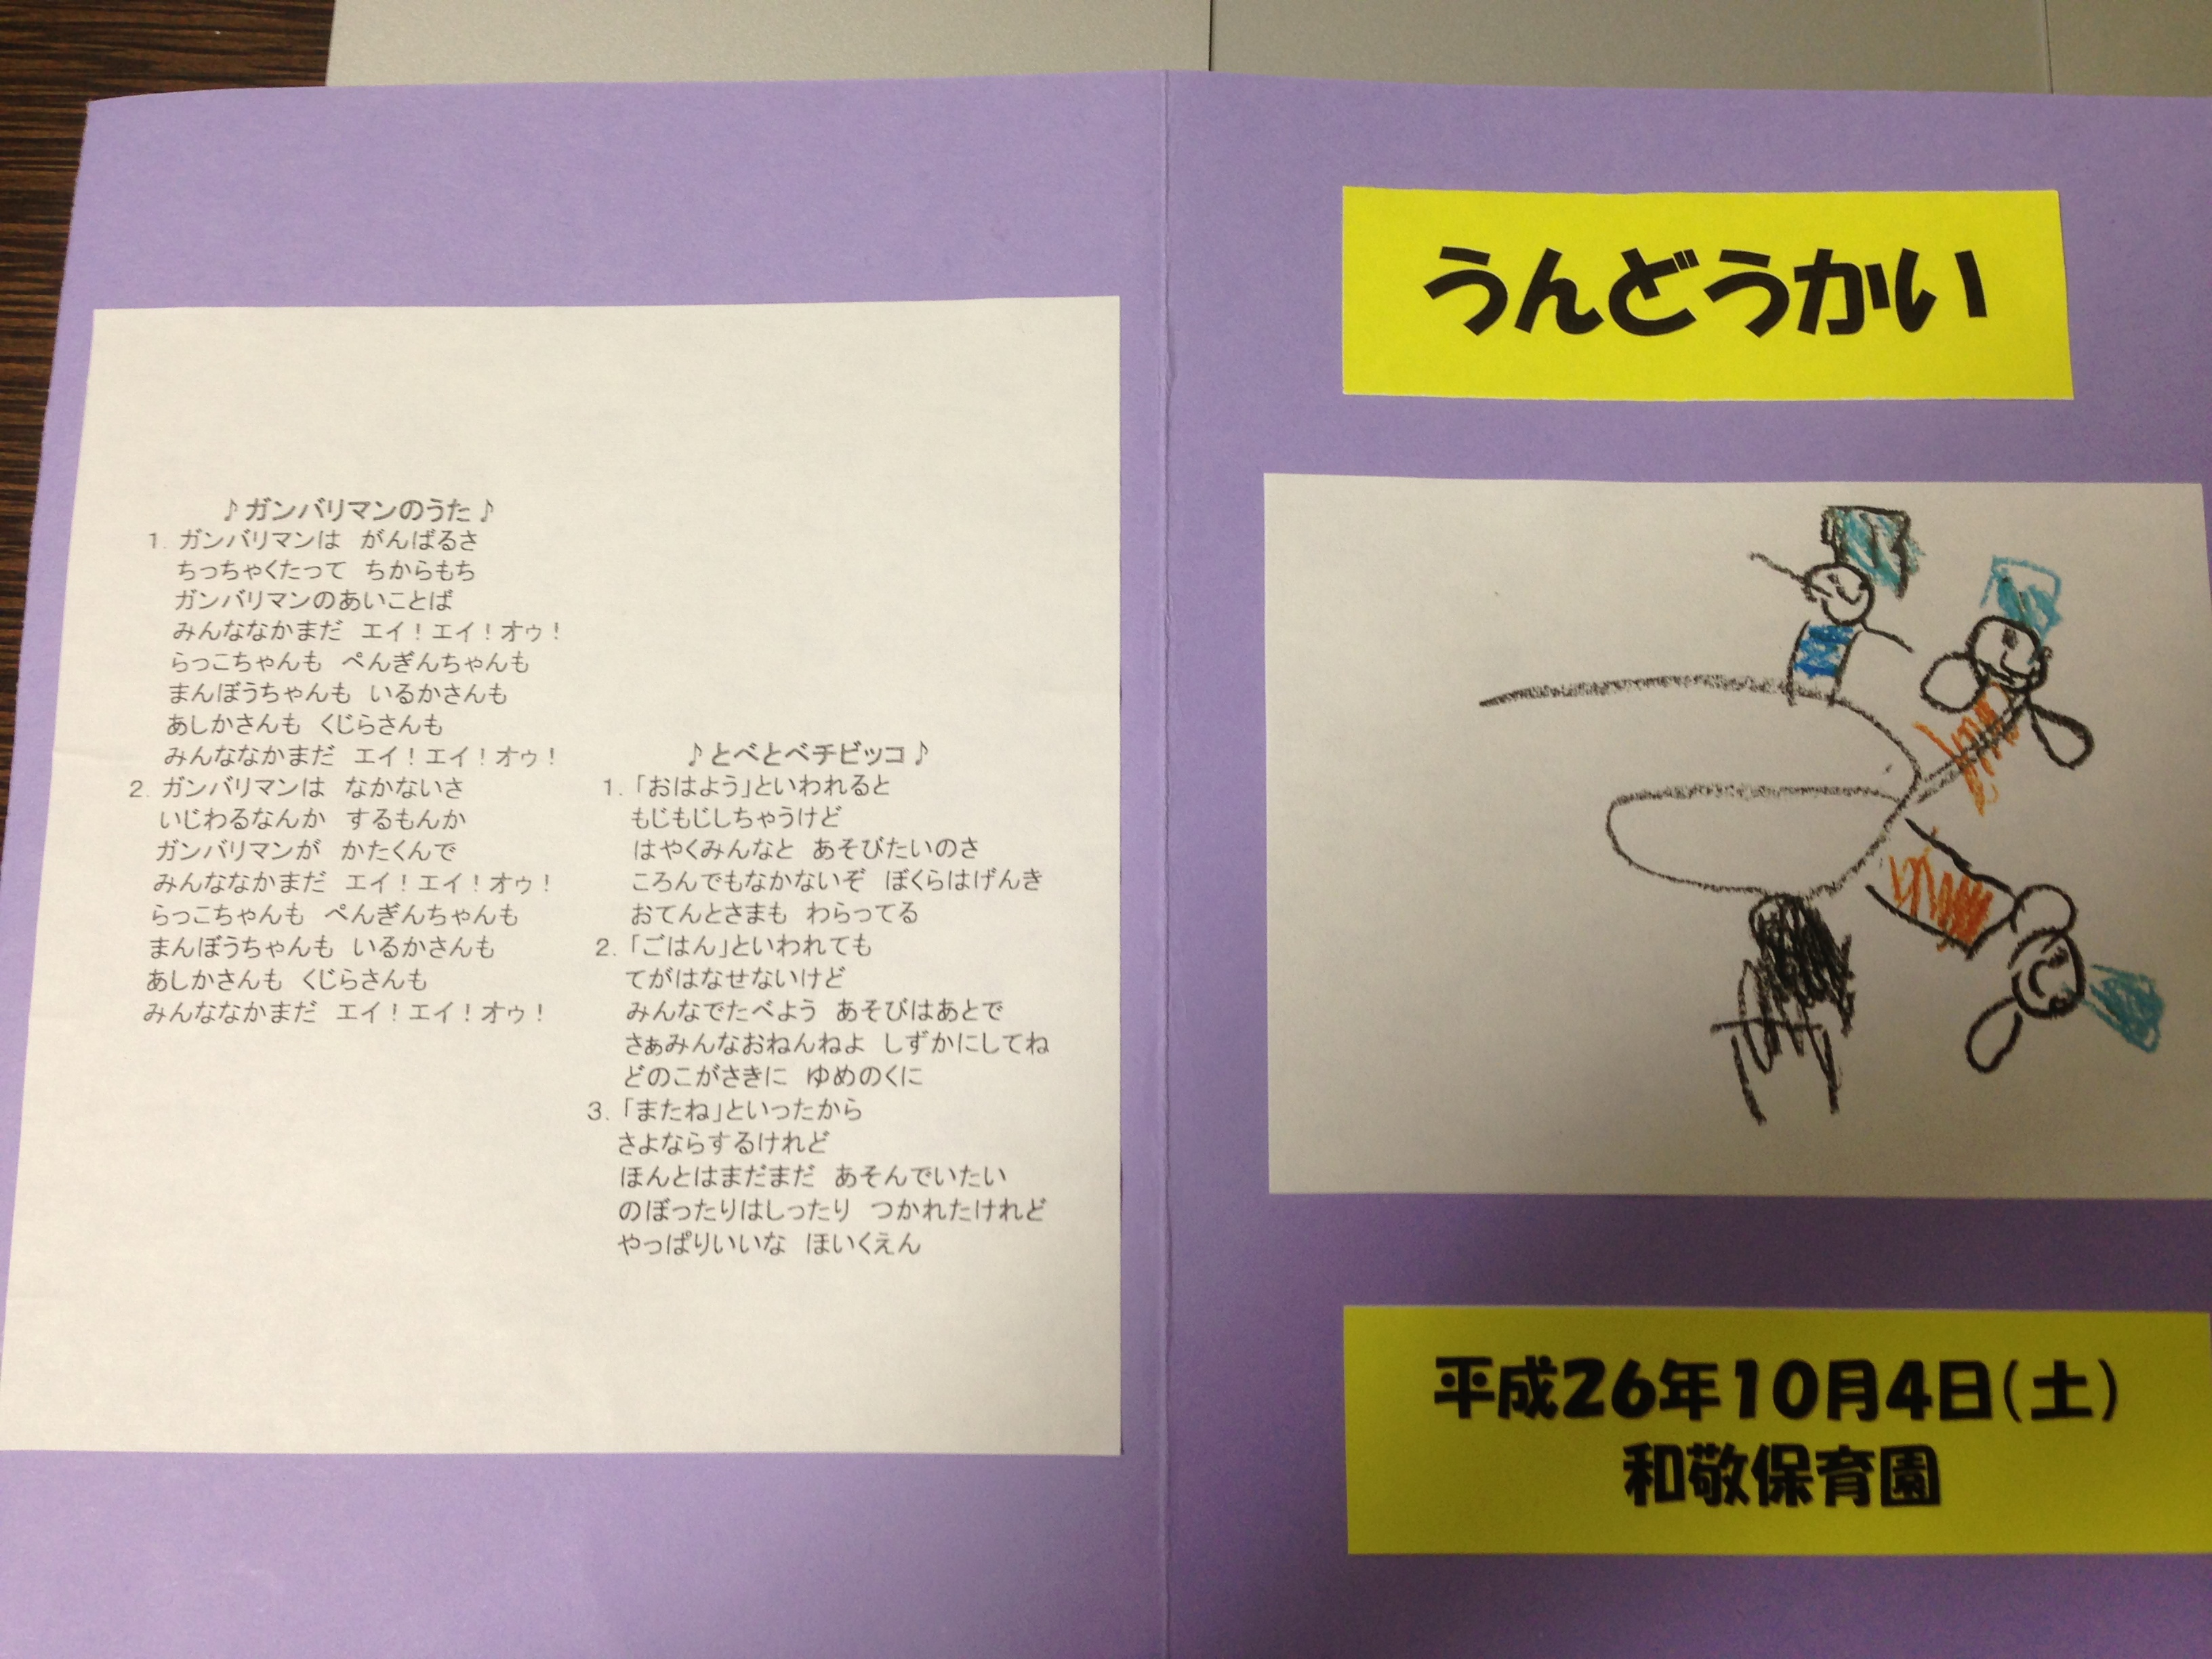 ♪ガンバリマンのうた♪
1. ガンバリマンは　がんばるさ
ちっちゃくたって　ちからもち
ガンバリマンのあいことば
みんななかまだ　エイ！エイ！オゥ！
らっこちゃんも　ぺんぎんちゃんも
まんぼうちゃんも　いるかさんも
あしかさんも　くじらさんも
みんななかまだ　エイ！エイ！オゥ！
2. ガンバリマンは　なかないさ
いじわるなんか　するもんか
ガンバリマンが　かたくんで
みんななかまだ　エイ！エイ！オゥ！
らっこちゃんも　ぺんぎんちゃんも
まんぼうちゃんも　いるかさんも
あしかさんも　くじらさんも
みんななかまだ　エイ！エイ！オゥ！
♪とべとべチビッコ♪
1. 「おはよう」といわれると
もじもじしちゃうけど
はやくみんなと　あそびたいのさ
ころんでもなかないぞ　ぼくらはげんき
おてんとさまも　わらってる
2. 「ごはん」といわれても
てがはなせないけど
みんなでたべよう　あそびはあとで
さぁみんなおねんねよ　しずかにしてね
どのこがさきに　ゆめのくに
3. 「またね」といったから
さよならするけれど
ほんとはまだまだ　あそんでいたい
のぼったりはしったり　つかれたけれど
やっぱりいいな　ほいくえん
うんどうかい
平成26年10月4日(土)
和敬保育園